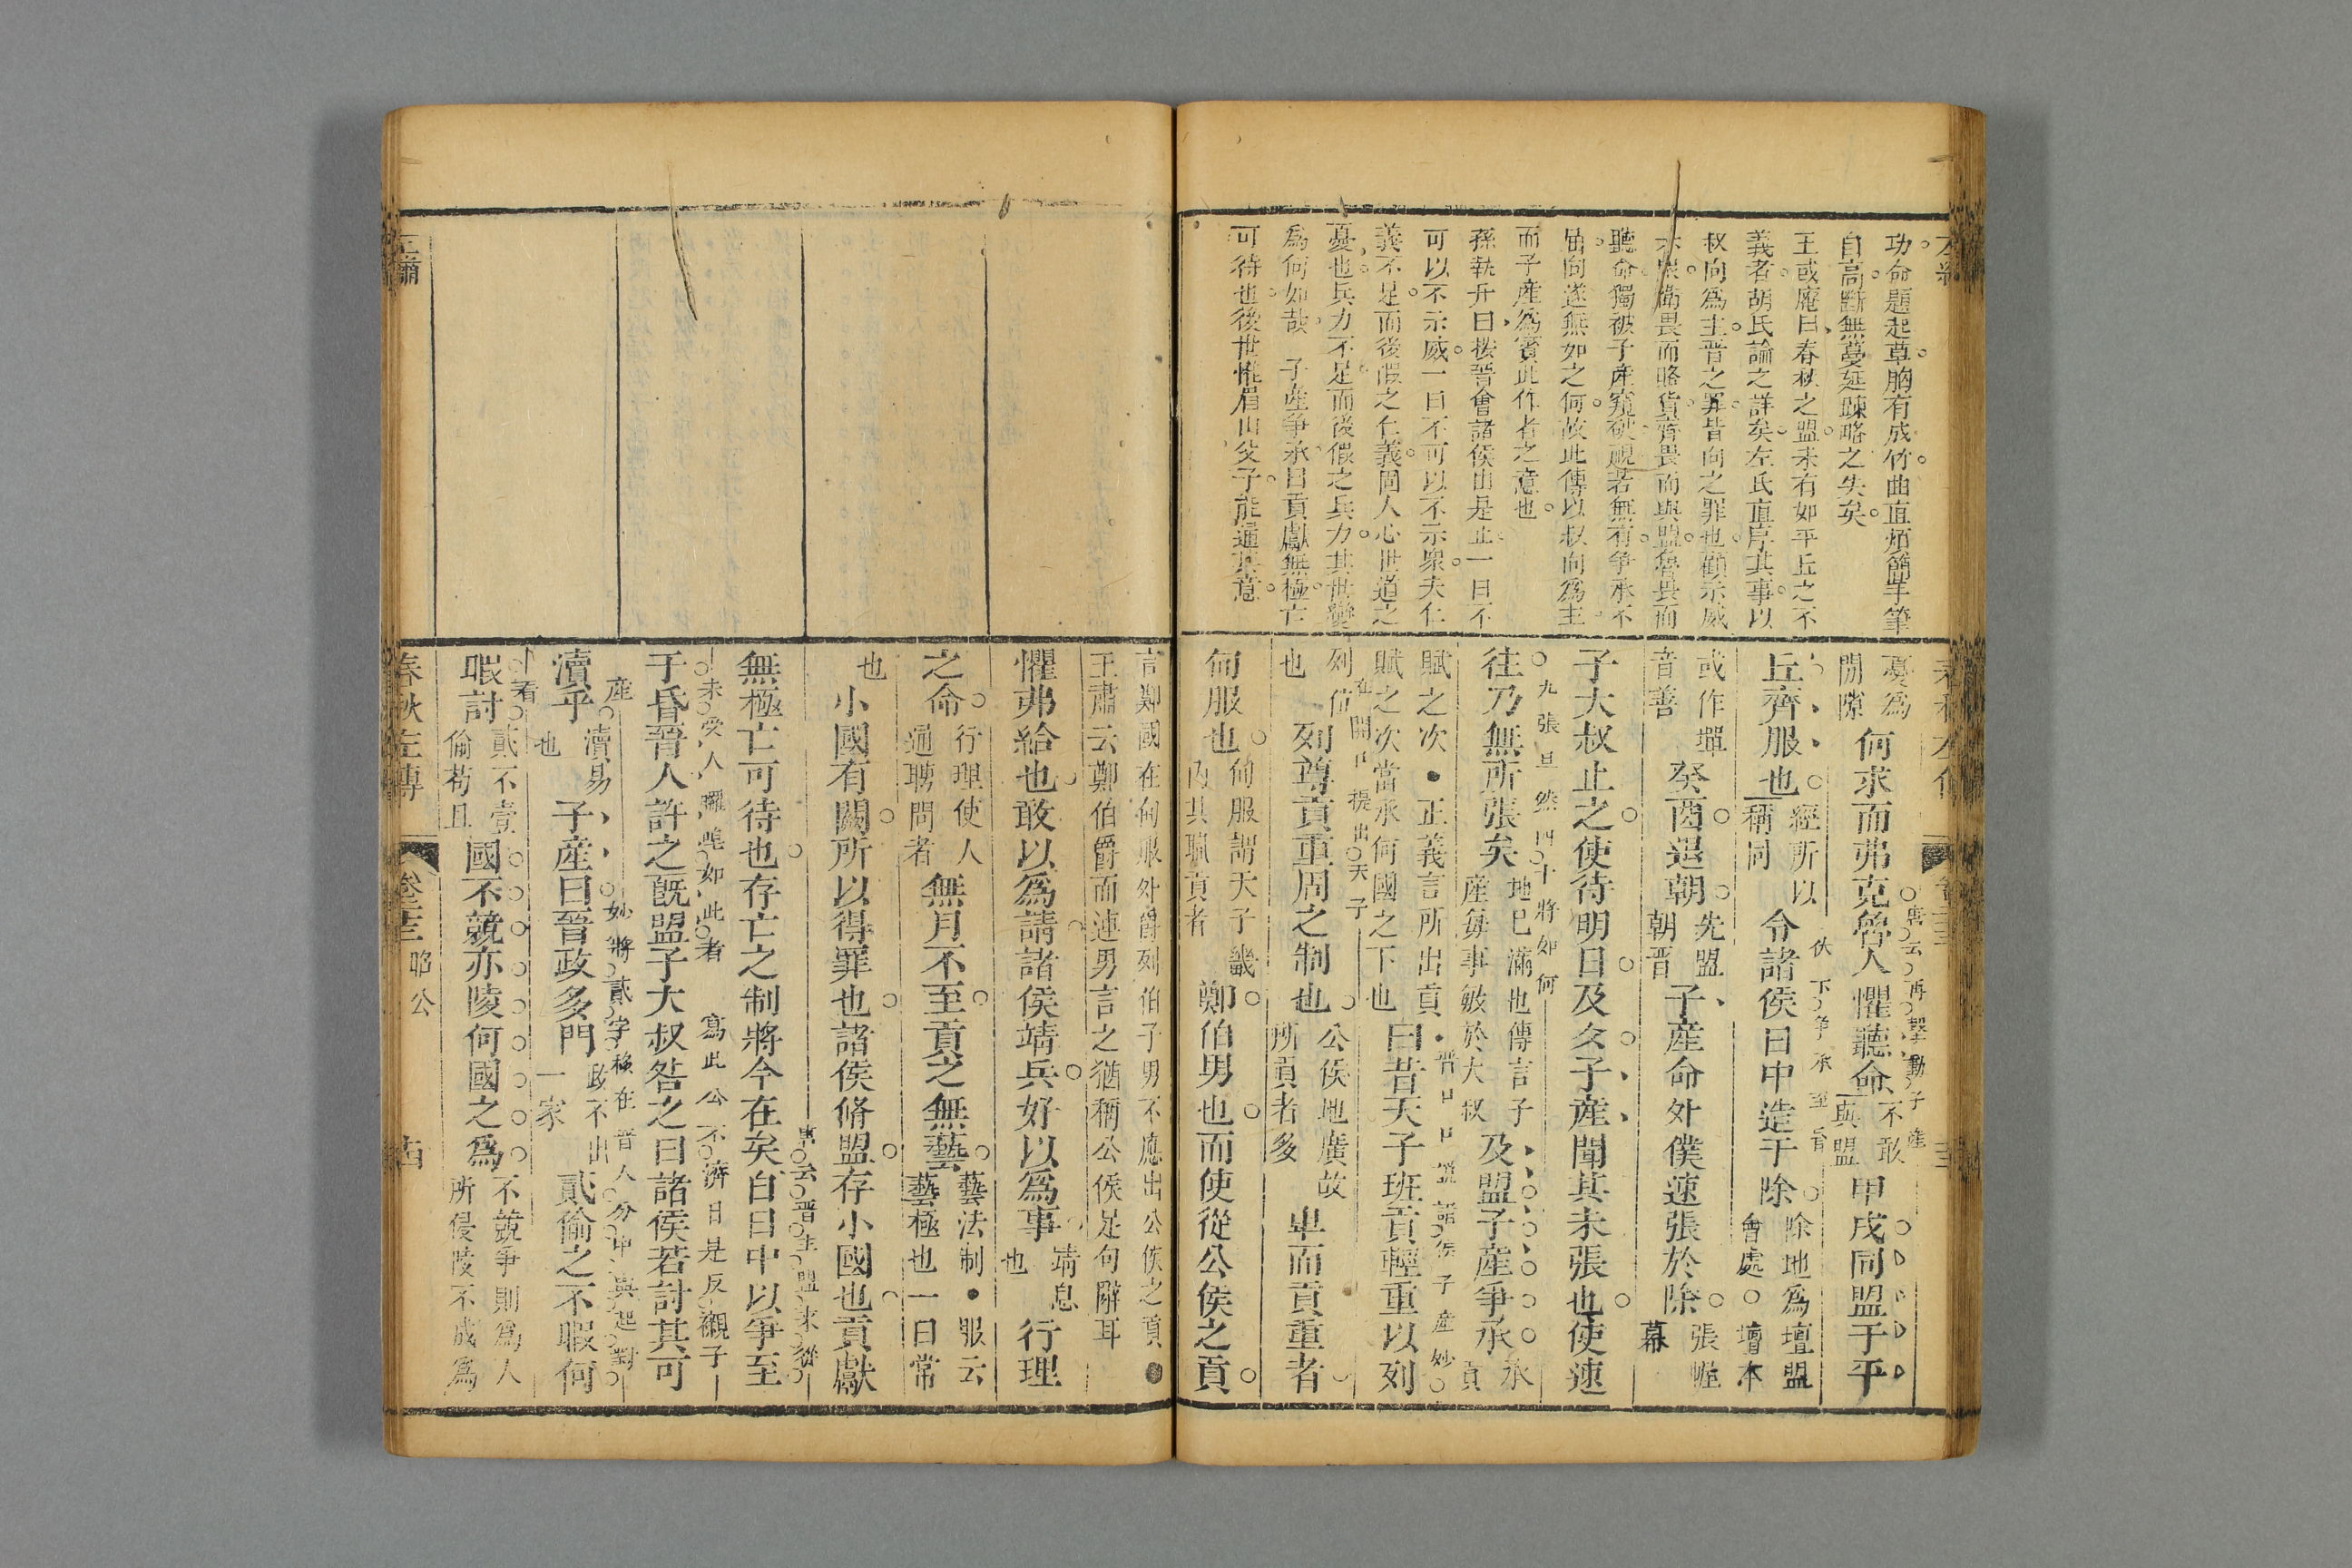 功命題起草胸有成竹曲直煩簡手筆
自高斷無蔓延踈略之失矣
王或菴曰春秋之盟未有如平丘之不
義者胡氏論之詳矣左氏直序其事以
叔向爲主晉之罪皆向之罪也顧示威
示衆衛畏而略貨齊畏而與盟魯畏而
聽命獨被子產窺破覷若無有爭承不
屈向遂無如之何故此傳以叔向爲主
而子產爲賓此作者之意也
孫執升曰按晉會諸侯出是止一日不
可以不示威一日不可以不示衆夫仁
義不足而後假之仁義固人心世道之
憂也兵力不足而後假之兵力其世變
爲何如哉 子產爭承曰貢獻無極亡
可待也後世惟眉山父子能通其意
憂爲
間隙
何求而弗克魯人懼聽命
不敢
與盟
甲戌同盟于平
丘齊服也
經所以
稱同
令諸侯日中造于除
除地爲壇盟
會處○壇本
或作墠
音善
癸酉退朝
先盟
朝晉
子產命外僕速張於除
張幄
幕
子大叔止之使待明日及夕子產聞其未張也使速
往乃無所張矣
地已滿也傳言子
產每事敏於大叔
及盟子產爭承
承
貢
賦之次•正義言所出貢
賦之次當承何國之下也
曰昔天子班貢輕重以列
列位
也
列尊貢重周之制也
公侯地廣故
所貢者多
卑而貢重者
甸服也
甸服謂天子畿
內共職貢者
鄭伯男也而使從公侯之貢
言鄭國在甸服外爵列伯子男不應出公侯之貢●
王肅云鄭伯爵而連男言之猶稱公侯足句辭耳
懼弗給也敢以爲請諸侯靖兵好以爲事
靖息
也
行理
之命
行理使人
通聘問者
無月不至貢之無藝
藝法制•服云
藝極也一曰常
也
小國有闕所以得罪也諸侯脩盟存小國也貢獻
無極亡可待也存亡之制將今在矣自日中以爭至
于昏晉人許之既盟子大叔咎之曰諸侯若討其可
瀆乎
瀆易
也
子產曰晉政多門
政不出
一家
貳偷之不暇何
暇討
貳不壹
偷苟且
國不競亦陵何國之爲
不競爭則爲人
所侵陵不成爲
春秋左傳
昭公